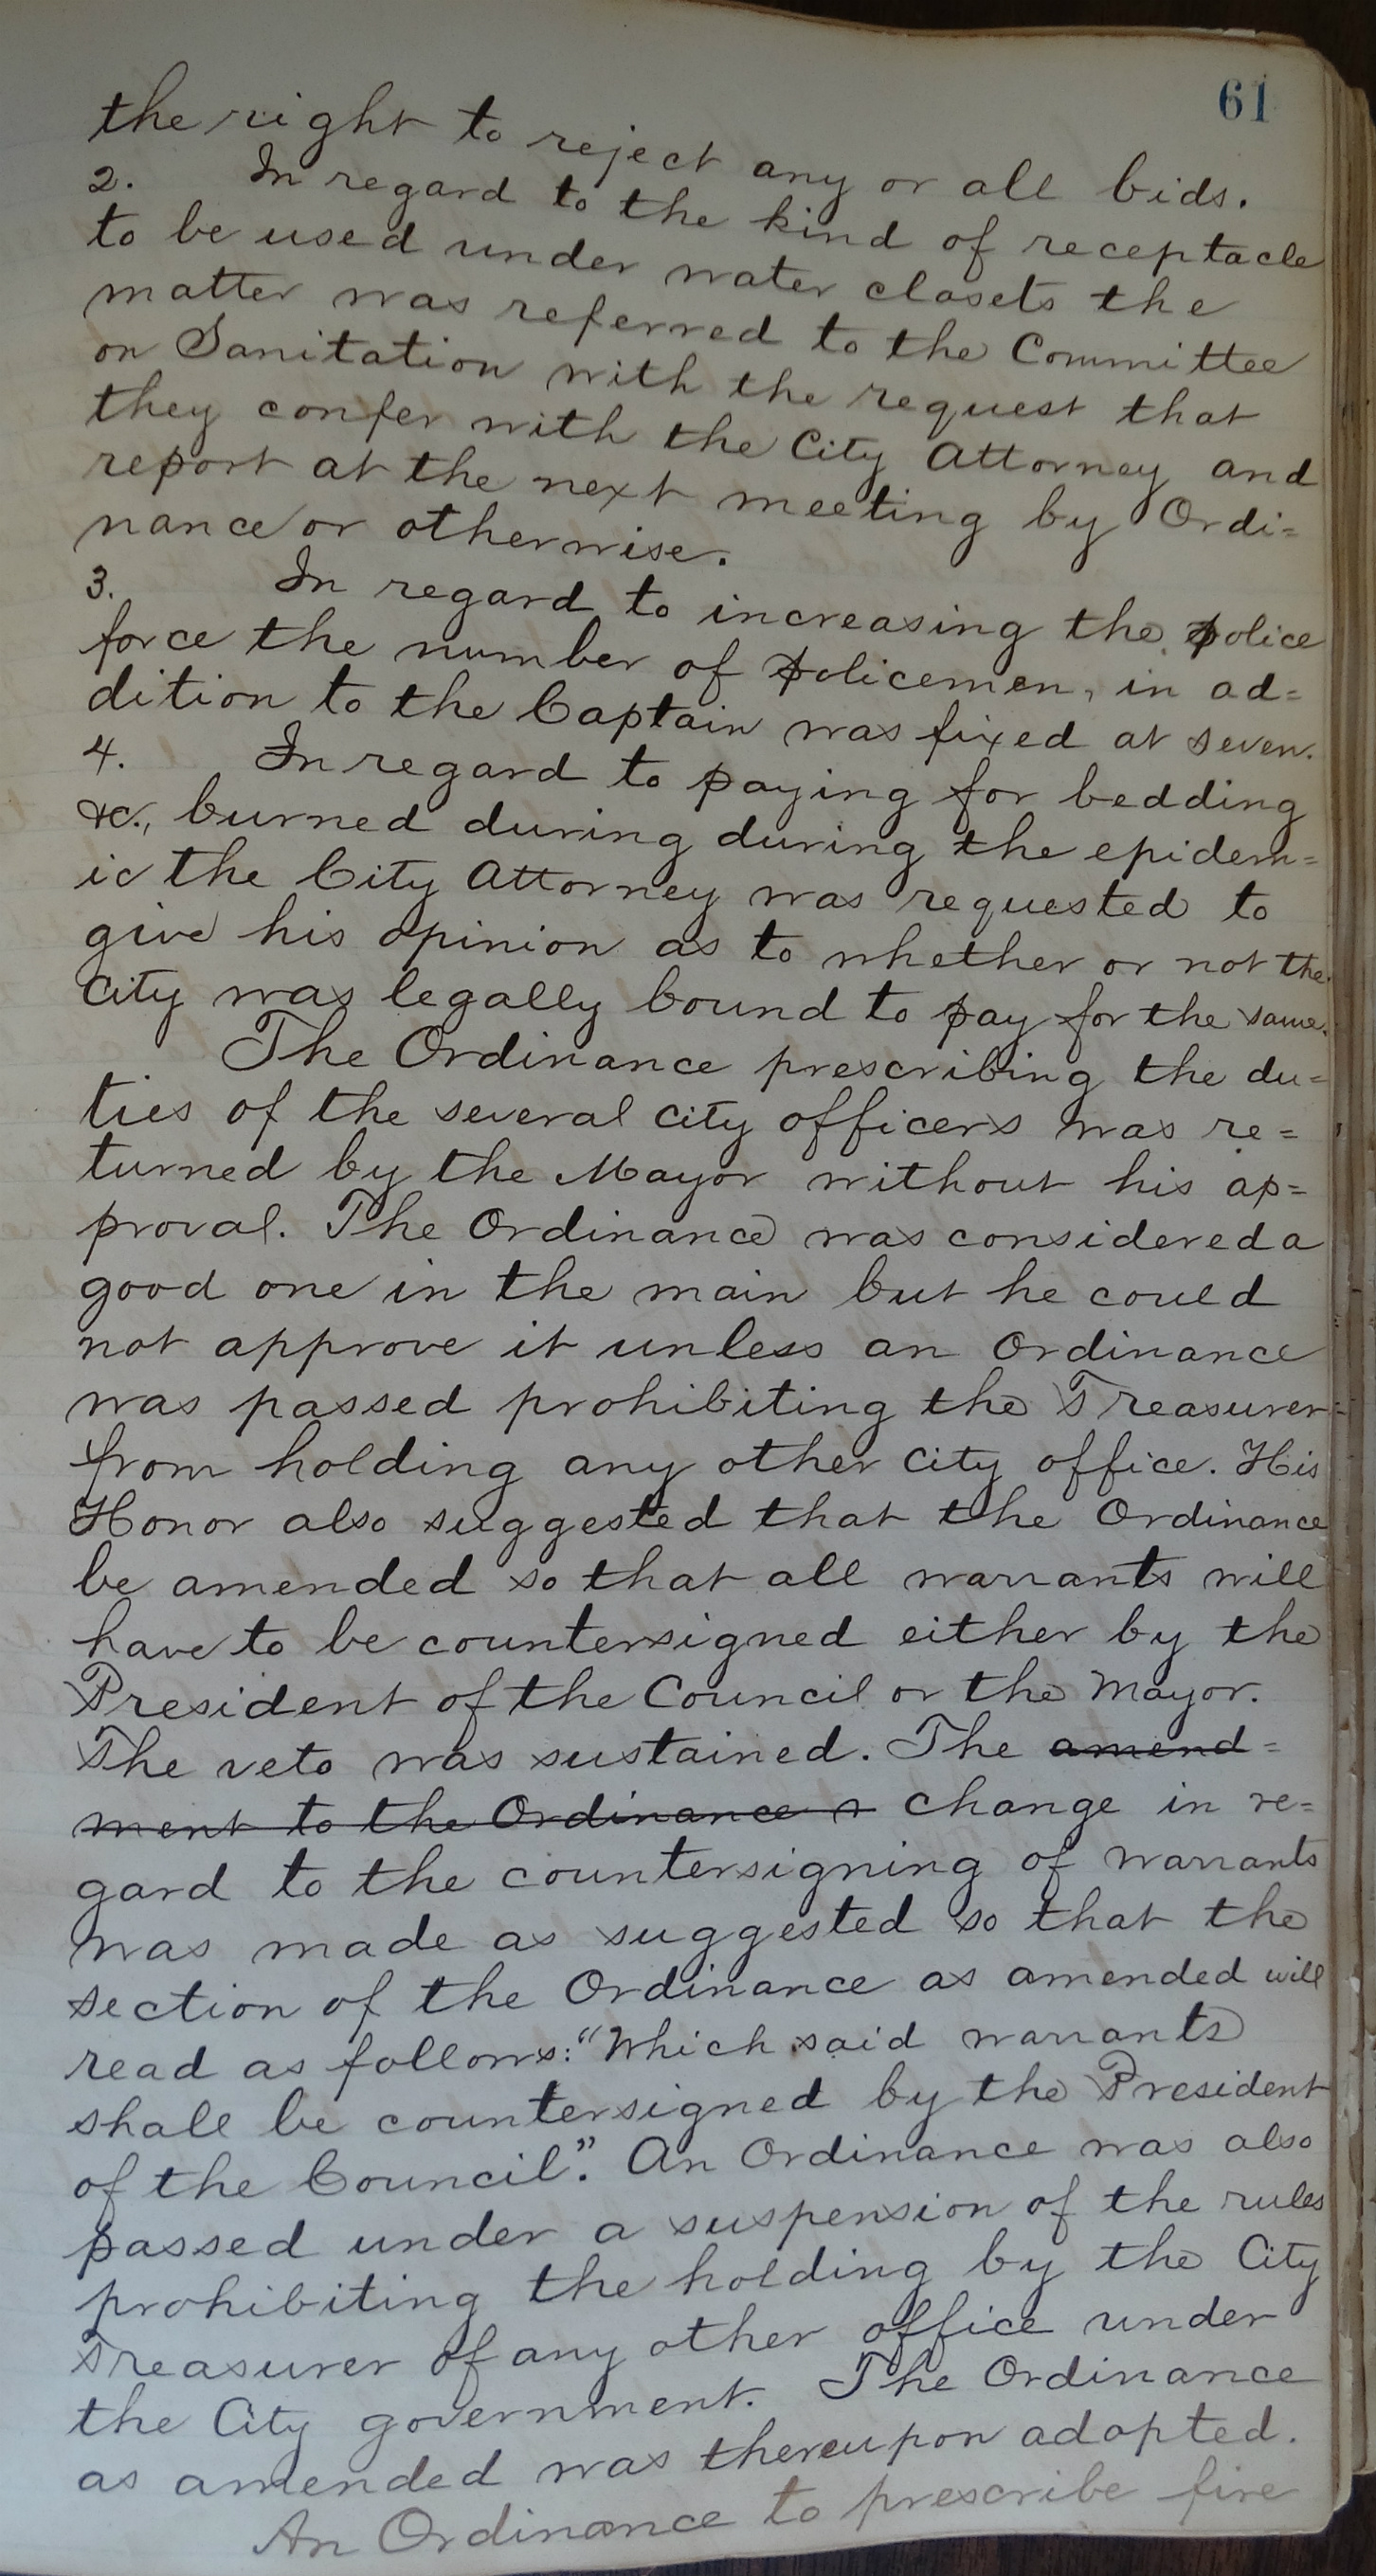 61
the right to reject any or all bids.
2. In regard to the kind of receptacle
to be used under water closets the
matter was referred to the Committee
on Sanitation with the request that
they confer with the City Attorney and
report at the next meeting by Ordi=
nance or otherwise.
3. In regard to increasing the police
force the number of policemen, in ad=
dition to the Captain was fixed at seven.
4. In regard to paying for bedding
&c., burned during during the epidem=
ic the City Attorney was requested to
give his opinion as to whether or not the
City was legally bound to pay for the same.
The Ordinance prescribing the du=
ties of the several city officers was re=
turned by the Mayor without his ap=
proval. The Ordinance was considered a
good one in the main but he could
not approve it unless an Ordinance
was passed prohibiting the Treasurer
from holding any other city office. His
Honor also suggested that the Ordinance
be amended so that all warrants will
have to be countersigned either by the
President of the Council or the Mayor.
The veto was sustained. The amend=
ment to the Ordinance r change in re=
gard to the countersigning of warrants
was made as suggested so that the
section of the Ordinance as amended will
read as follows: "Which said warrants
shall be countersigned by the President
of the Council". An Ordinance was also
passed under a suspension of the rules
prohibiting the holding by the City
Treasurer of any other office under
the City government. The Ordinance
as amended was thereupon adopted.
An Ordinance to prescribe fire